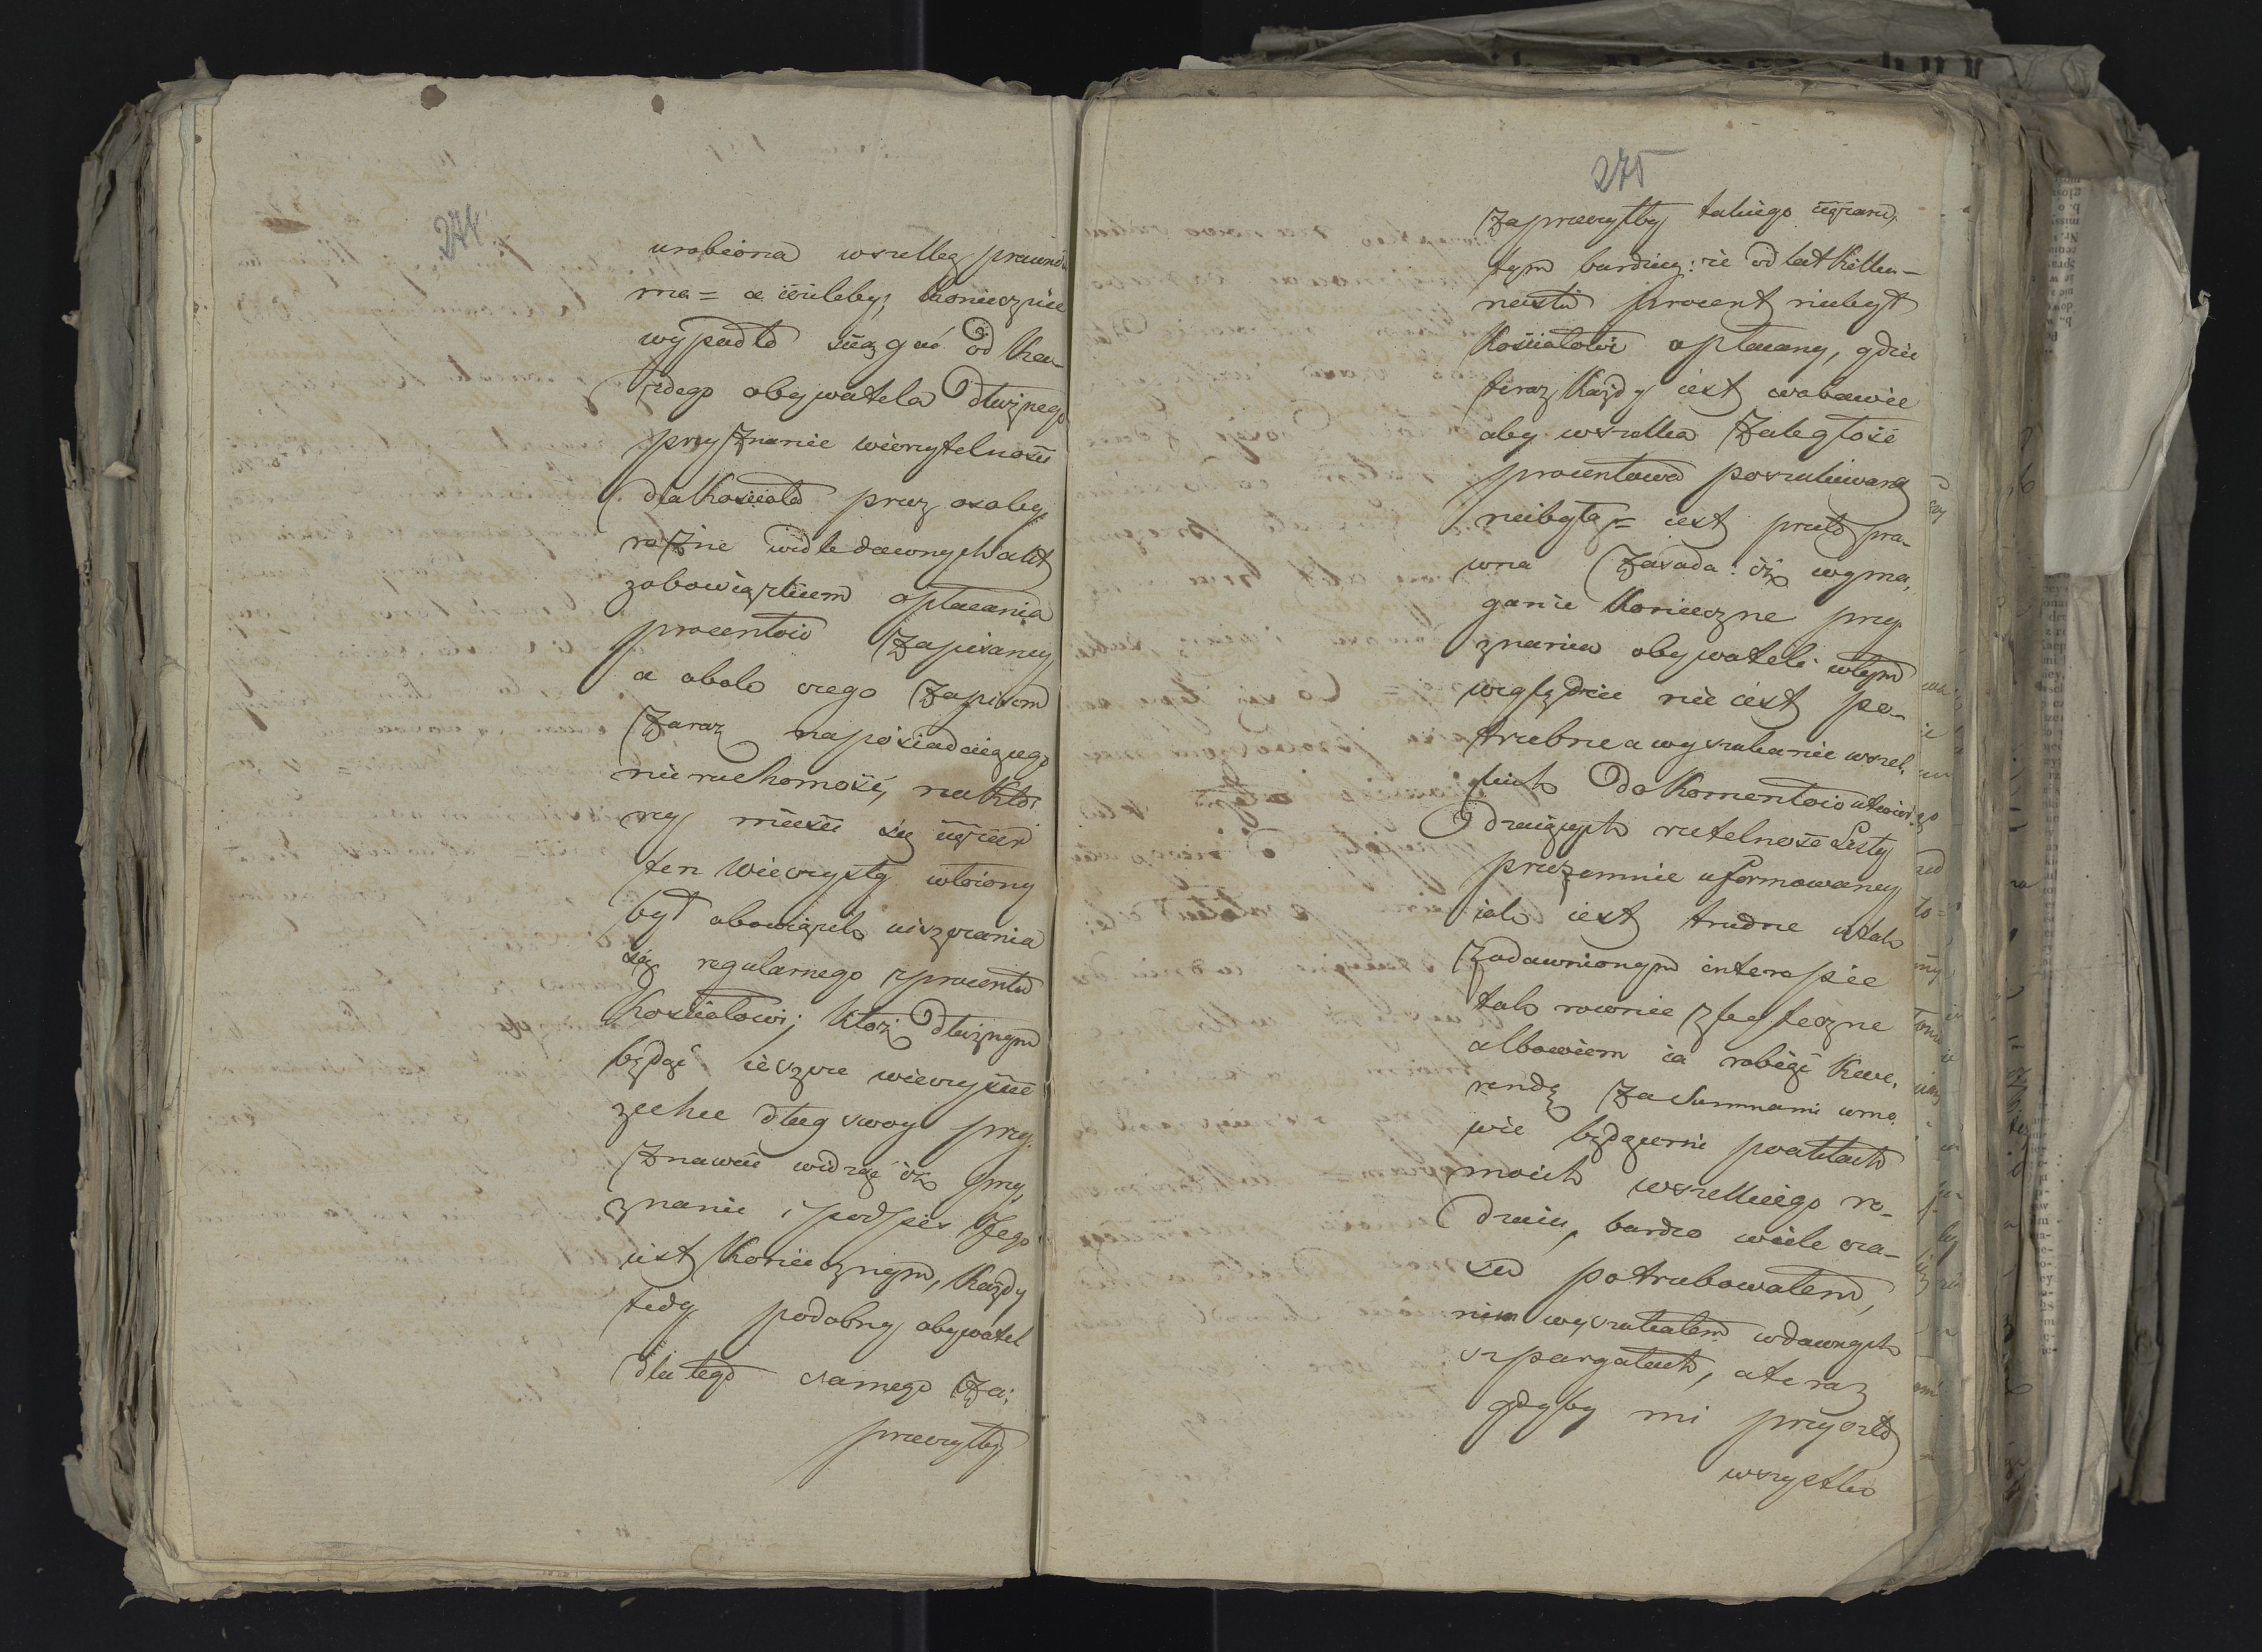 274
urobiona wszelką prawid-
ma = a ieśliby, koniecznie
wypadło siągać od ka-
żdego obywatela dłużnego
przyznanie wierzytelności
dla Kościoła przez osoby
rożne wedle dawnych akt
zobowiązkiem opłacania
procentow zapisaney
a obok czego zapisem
zaraz na posiadaiącego
nieruchomość, na któ-
rey mieści się ciężar
ten wieczysty włożony
był obowiązek uiszczania
się regularnego z procentu
Kościołowi; ktoż dłużnym
będąc ieszcze wieczyście
zechce dług swoy przy-
znawać widząc iż przy-
znanie i podpis Jego
iest koniecznym, każdy
tedy podobny obywatel
dla tego samego za-
przeczyłby
275
Zaprzeczyłby takiego ciężaru,
tym bardziey: że od lat kilku-
nastu procent niebył
Kościołowi opłacany, gdzie
teraz każdy iest w obawie
aby wszelka zaległość
procentowa poszukiwaną
niebyła = iest przeto pra-
wna zasada: iż wyma-
ganie konieczne przy-
znania obywateli w tym
względzie nie iest po-
trzebne a wyszukanie wszel-
kich dokomentow utwier-
dzaiących rzetelność Listy
przezemnie uformowaney
iak iest trudne w tak
zadawnionym interessie
tak rownie zbyteczne
albowiem ia robiąc kwe-
rendę za Summami w mo-
wie będącemi po aktach
moich wszelkiego ro-
dzaiu, bardzo wiele cza-
su potrzebowałem,
nim wyszukałem w dawnych
szpargałach, a teraz
gdyby mi przyszło
wszystko